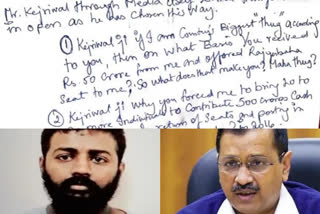 Mr. Kejriwal through Media
in open as he has chosen this way.
① Kejriwal ji if I am Country's Biggest thug According
to you, then on what Basis You received
Rs. 50 Crore from me and offered Rajyasabha
Seat to me?. So what does that make you? Maha thug?
② Kejriwal ji why you forced me to bring 20 to
more Individuals to Contribute 500 Crores Cash
return of Seats and posting in